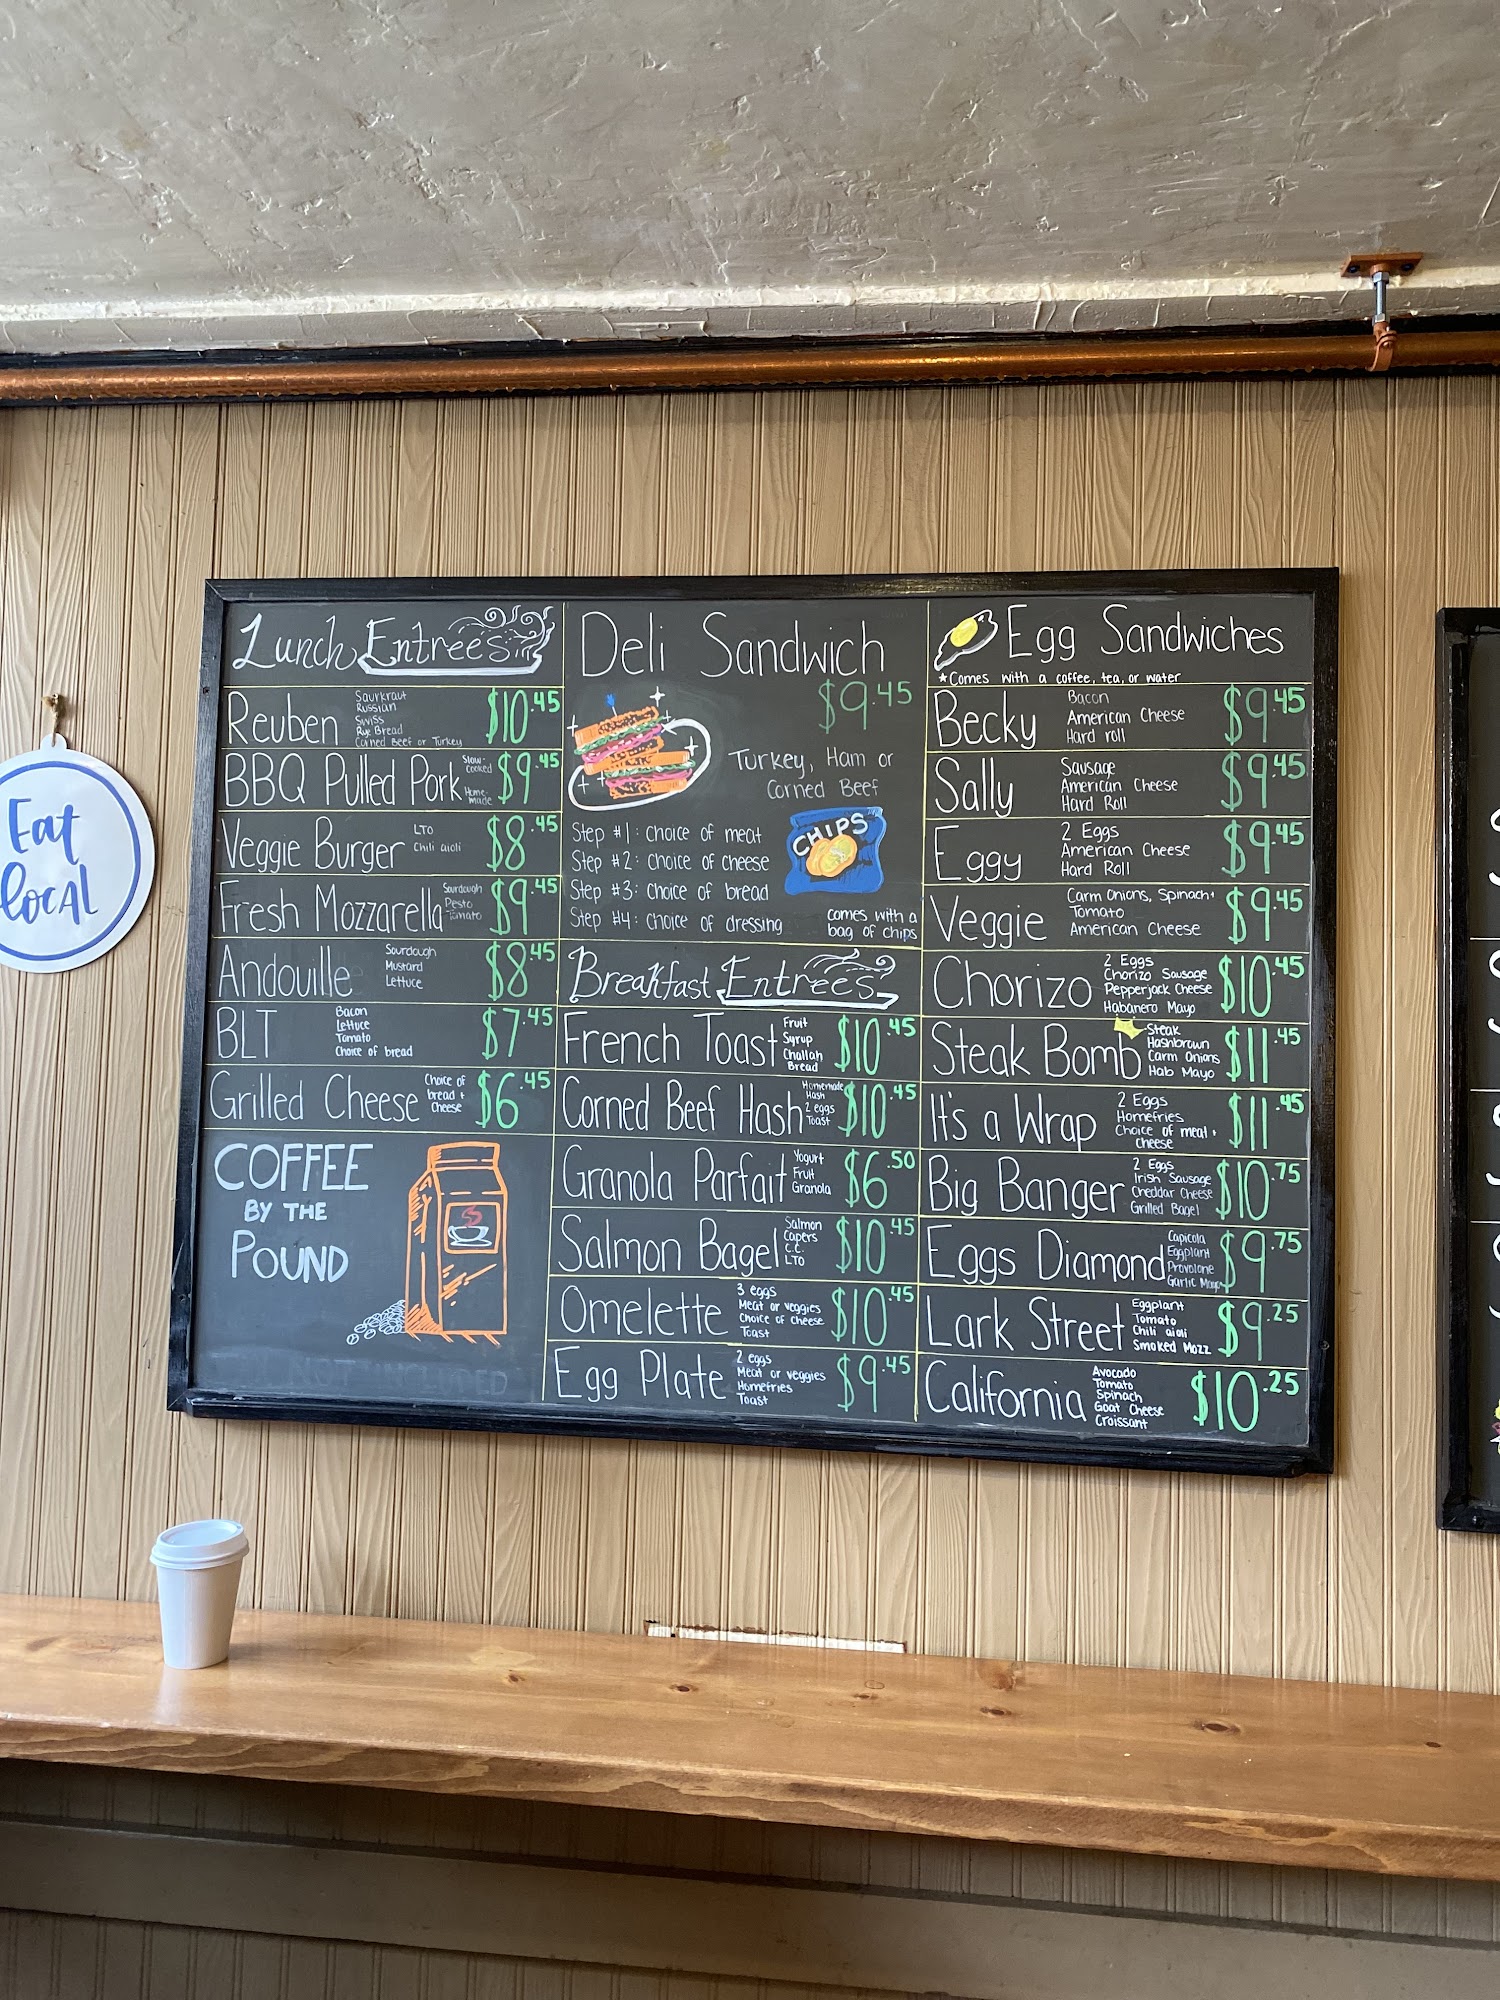 Eat
local
Lunch Entrees
Reuben
Saurkraut
Russian
Swiss
Rye Bread
Corned Beef or Turkey
$10.45
BBQ Pulled Pork
Slow-
cooked
Home-
made
$9.45
Veggie Burger
LTO
Chili aioli
$8.45
Fresh Mozzarella
Sourdough
Pesto
Tomato
$9.45
Andouille
Sourdough
Mustard
Lettuce
$8.45
BLT
Bacon
Lettuce
Tomato
Choice of bread
$7.45
Grilled Cheese
Choice of
bread +
Cheese
$6.45
COFFEE
BY THE
POUND
Deli Sandwich
$9.45
Turkey, Ham or
Corned Beef
CHIPS
Step #1: choice of meat
Step #2: choice of cheese
Step #3: choice of bread
Step #4: choice of dressing
comes with a
bag of chips
Breakfast Entrees
French Toast
Fruit
Syrup
Challah
Bread
$10.45
Corned Beef Hash
Homemade
Hash
2 eggs
Toast
$10.45
Granola Parfait
Yogurt
Fruit
Granola
$6.50
Salmon Bagel
Salmon
Capers
C.C.
LTO
$10.45
Omelette
3 eggs
Meat or veggies
Choice of cheese
Toast
$10.45
Egg Plate
2 eggs
Meat or veggies
Homefries
Toast
$9.45
Egg Sandwiches
*Comes with a coffee, tea, or water
Becky
Bacon
American Cheese
Hard roll
$9.45
Sally
Sausage
American Cheese
Hard Roll
$9.45
Eggy
2 Eggs
American Cheese
Hard Roll
$9.45
Veggie
Carm Onions, Spinach+
Tomato
American Cheese
$9.45
Chorizo
2 Eggs
Chorizo Sausage
Pepperjack Cheese
Habanero Mayo
$10.45
Steak Bomb
Steak
Hashbrown
Carm Onions
Hab Mayo
$11.45
It's a Wrap
2 Eggs
Homefries
Choice of meat +
cheese
$11.45
Big Banger
2 Eggs
Irish Sausage
Cheddar Cheese
Grilled Bagel
$10.75
Eggs Diamond
Capicola
Eggplant
Provolone
Garlic Mayo
$9.75
Lark Street
Eggplant
Tomato
Chili aioli
Smoked Mozz
$9.25
California
Avocado
Tomato
Spinach
Goat Cheese
Croissant
$10.25